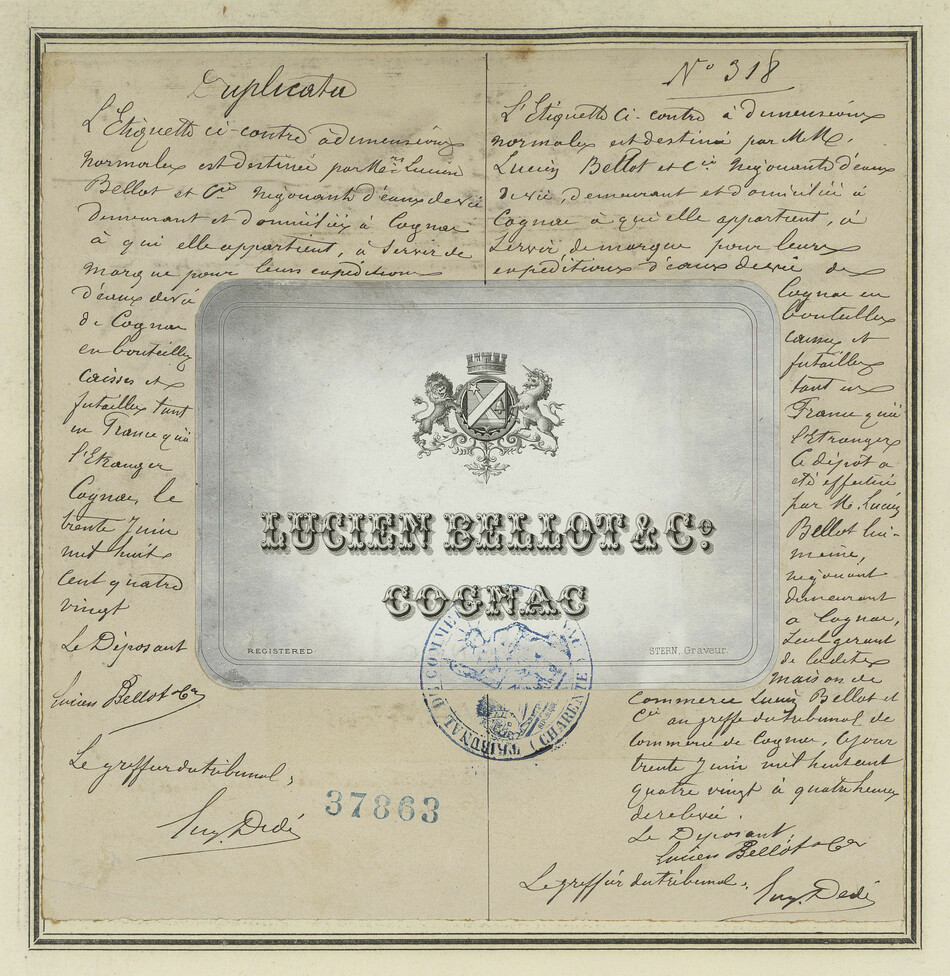 Duplicata
L'Etiquette ci-contre à dimensions
normales est destinée par MM. Lucien
Bellot et Cie Négociants d'eaux de vie
demeurant et domiciliés à Cognac
à qui elle appartient, à servir de
marque pour leurs expéditions
d'eaux de vie
de Cognac
en bouteilles
caisses et
futailles tant
en France qu'à
l'Etranger
Cognac, le
trente Juin
mil huit
cent quatre
vingt
Le Déposant
Lucien Bellot & Co
Le greffier du tribunal,
Eug. Dedé
37863
No 318
L'Etiquette ci-contre à dimensions
normales est destinée par MM.
Lucien Bellot et Cie Négociants d'eaux
de vie, demeurant et domiciliés à
Cognac à qui elle appartient, à
servir de marque pour leurs
expéditions d'eaux de vie de
Cognac en
bouteilles
caisses et
futailles
tant en
France qu'à
l'Etranger
Ce dépôt a
été effectué
par M. Lucien
Bellot lui-
même,
négociant
demeurant
à Cognac,
seul gérant
de la dite
maison de
commerce Lucien Bellot et
Cie au greffe du tribunal de
commerce de Cognac, ce jour
trente Juin mil huit cent
quatre vingt à quatre heures
de relevée.
Le Déposant
Lucien Bellot & Co
Le greffier du tribunal,
Eug. Dedé
LUCIEN BELLOT & Co.
COGNAC
REGISTERED
STERN, Graveur.
TRIBUNAL DE COMMERCE DE COGNAC (CHARENTE)